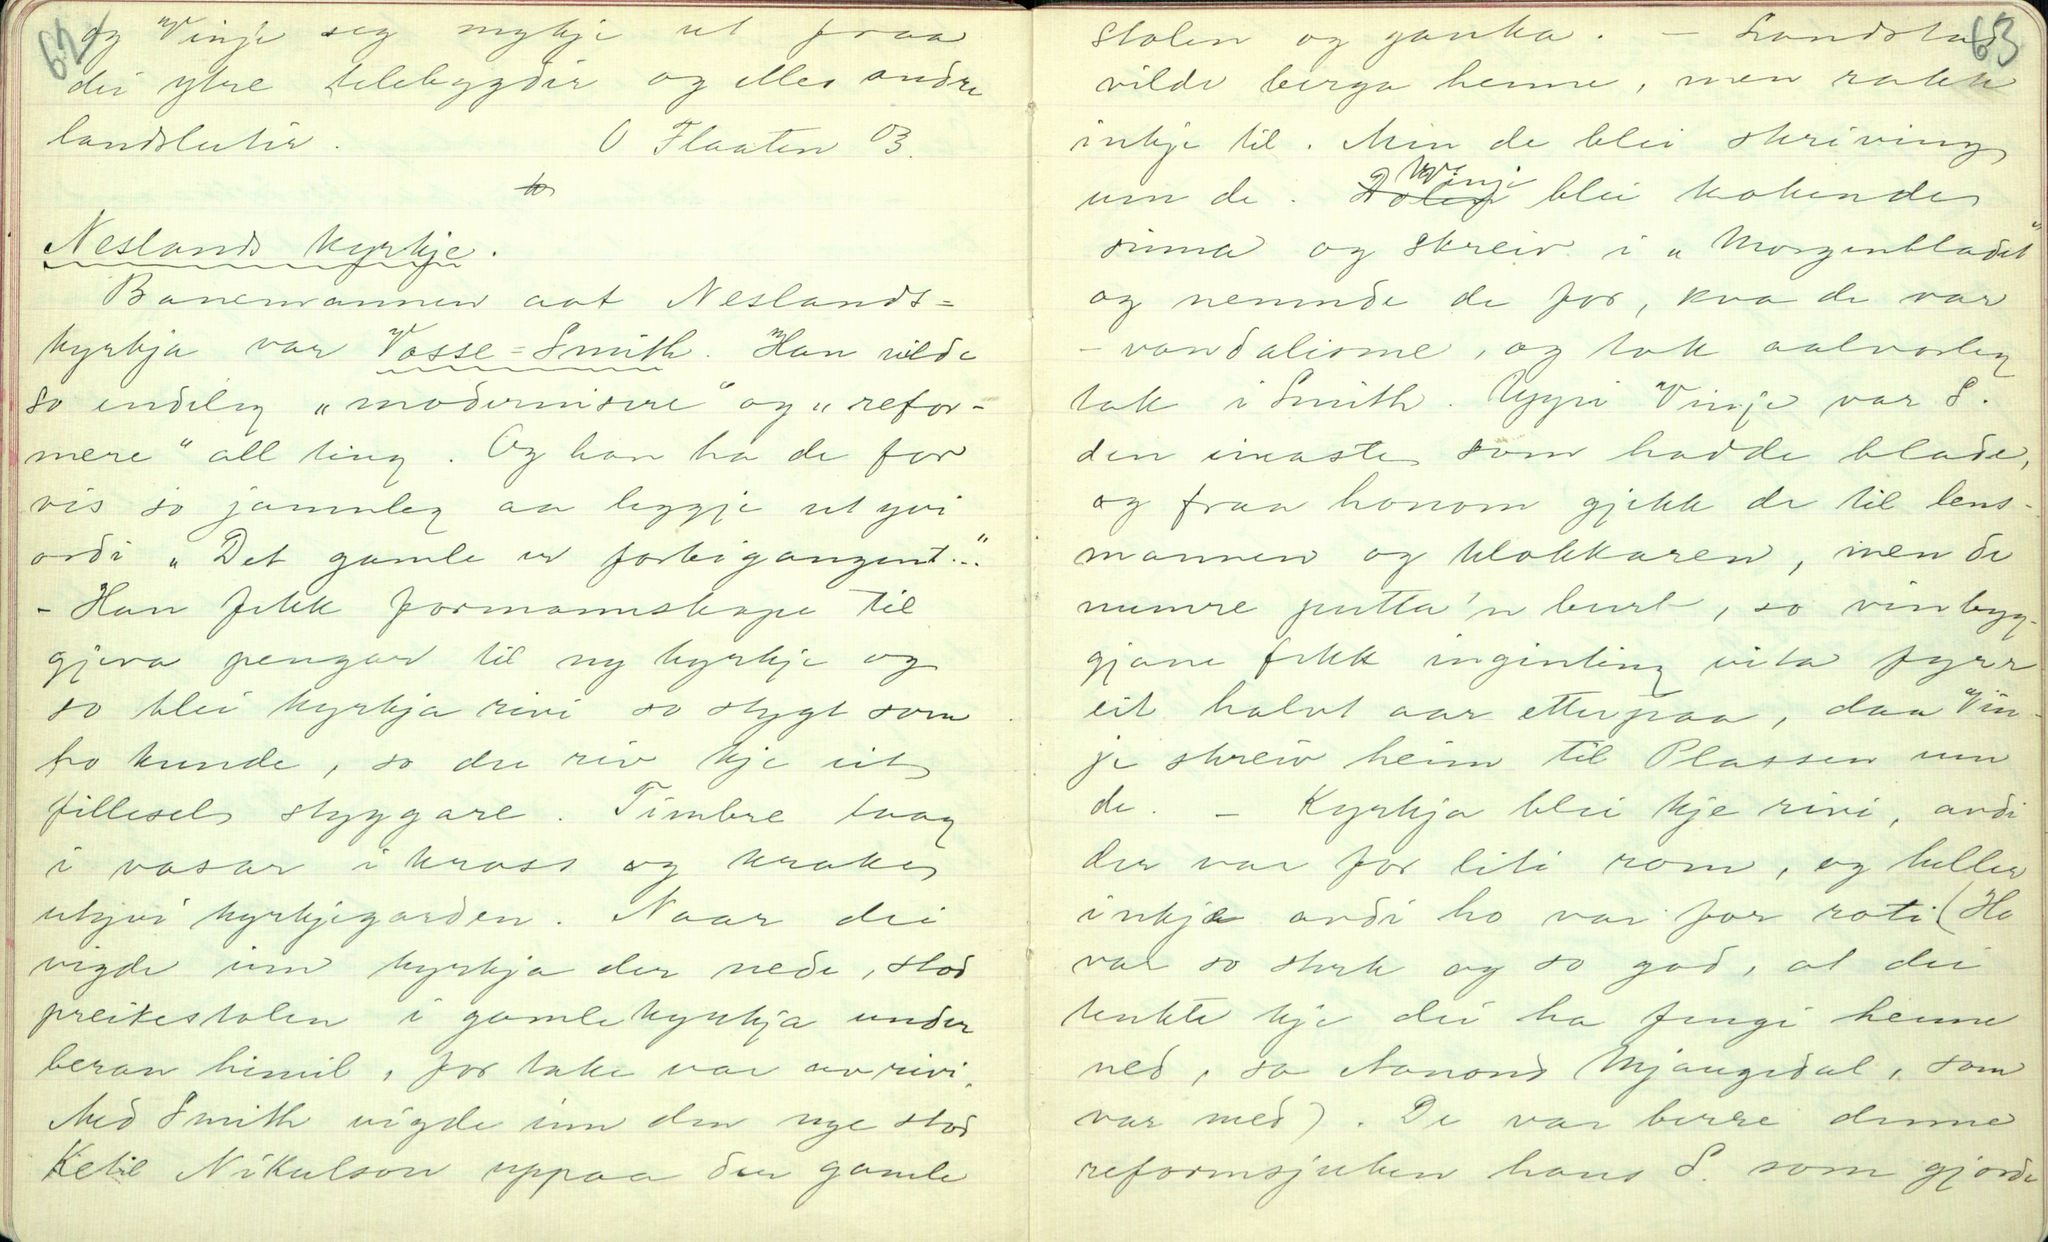 62/
og Vinje seg mykje ut fraa
dei ytre telebygdir og elles andre
landslutir. O Flaaten 03.
Neslands kyrkje.
Banemannen aat Neslands=
kyrkja var Vosse=Smith. Han vilde
so endeleg „modernisere“ og „refor-
mere“ all ting. Og han ha de for
vis so jamnleg aa leggje ut yvi
ordi „Det gamle er forbigangent...“
- Han fekk formannskape til
gjeva pengar til ny kyrkje og
so blei kyrkja rivi so stygt som
ho kunde, so dei reiv kje eit
fillesel styggare. Timbre laag
i vasar i kross og krake
utyvi kyrkjegarden. Naar dei
vigde inn kyrkja der nede, stod
preikestolen i gamle kyrkja under
beran himil, for take var av rivi.
Med Smith vigde inn den nye stod
Ketil Nikulson uppaa den gamle
63
stolen og gauka. - Landstad
vilde berga henne, men rakk
inkje til. Men de blei skriving
um de. Dolen Vinje blei kokende
sinna og skreiv i „Morgenbladet“
og nemnde de for, kva de var
- vandalisme, og tok aalvorleg
tak i Smith. Uppi Vinje var S.
den einaste som hadde blade,
og fraa honom gjekk de til lens-
mannen og klokkaren, men de
numre putta'n burt, so vinbyg-
gjane fekk ingenting vita fyrr
eit halvt aar etterpaa, daa Vin-
je skreiv heim til Plassen um
de. - Kyrkja blei kje rivi, avdi
der var for liti rom, og heller
inkje avdi ho var for roti (Ho
var so sterk og so god, at dei
tenkte kje dei ha fengi henne
ned, sa Aanond Mjaugedal, som
var med). De var berre denne
reformsjuken hans S. som gjorde